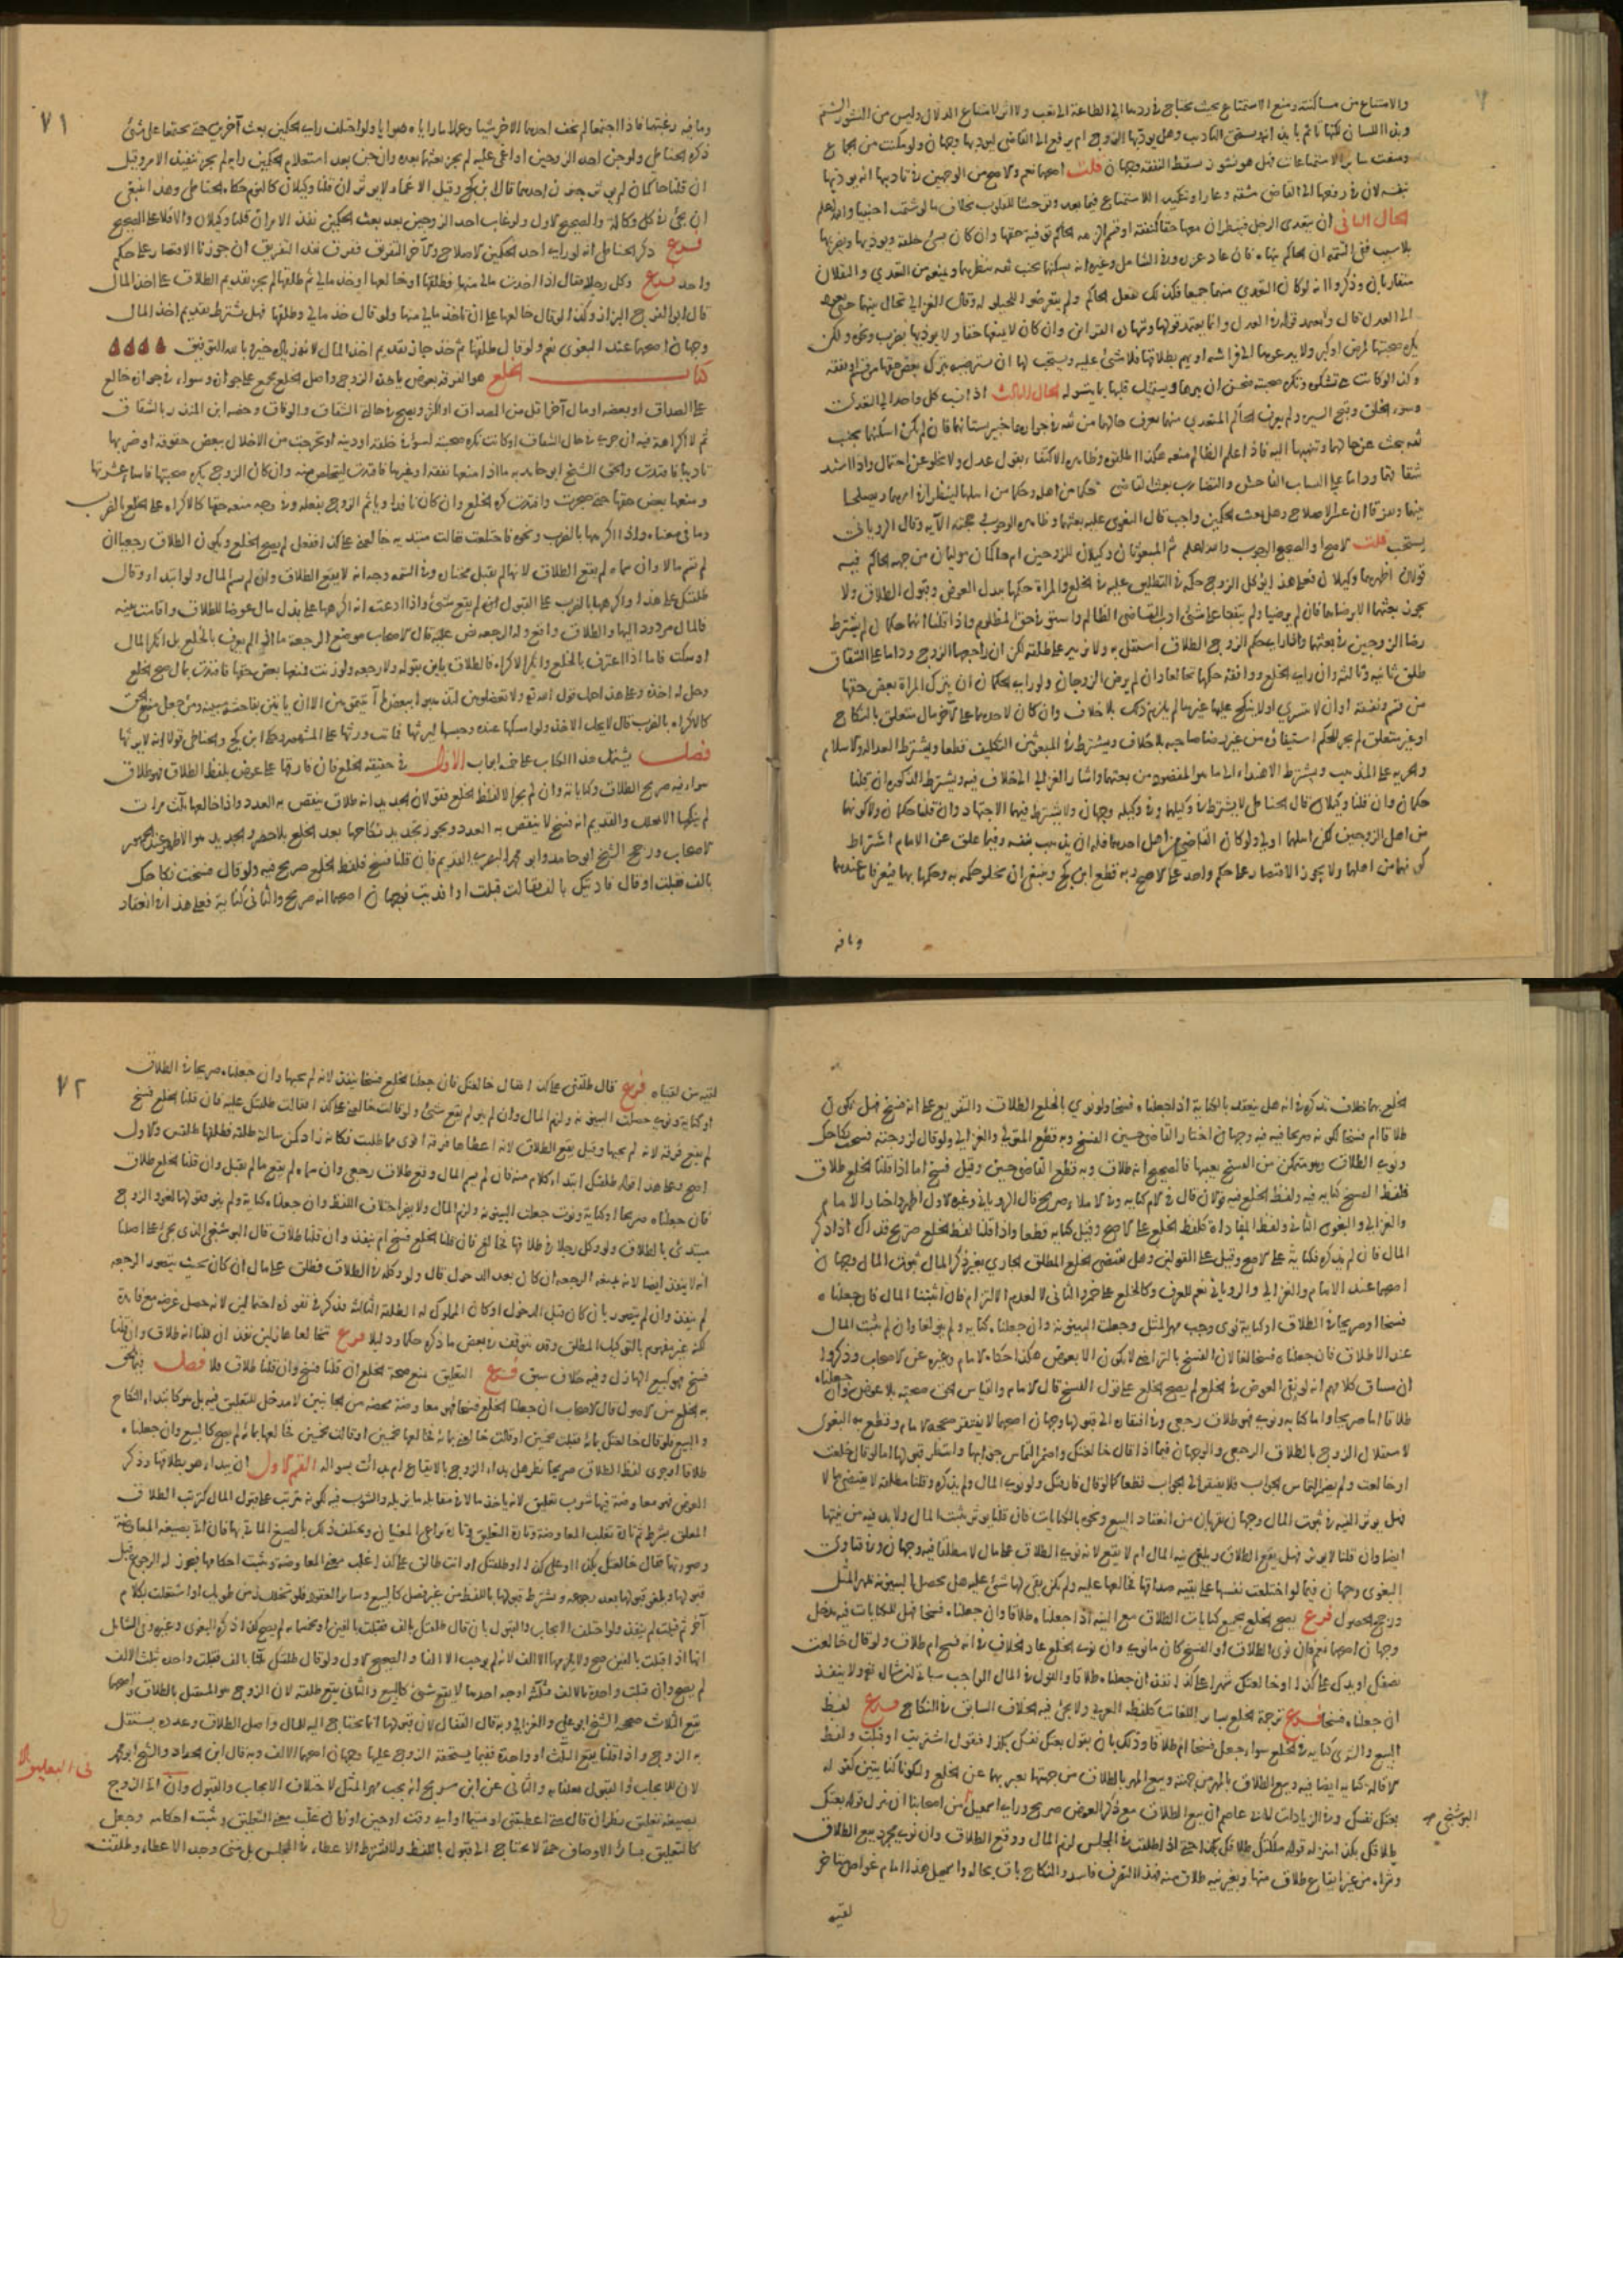 والامتناع من مساكنته ومنع الاستمتاع بحيث يحتاج في ردها الى الطاعة الى تعب ولا اثر لامتناع الدلال وليس من النشوز الشتم
وبذا اللسان لكنها تاثم بايذائه وتستحق التاديب وهل يودبها الزوج ام يرفع الى القاضي ليودبها وجهان ولو مكنت من الجماع
ومنعت ساير الاستمتاعات فهل هو نشوز يسقط النفقة وجهان قلت اصحهما نعم والاصح من الوجهين في تاديبها انه يودبها
بنفسه لان في رفعها الى القاضي مشقة وعارا وتنكيدا للاستمتاع فيما بعد وتوحشا للقلوب بخلاف ما لو شتمت اجنبيا والله اعلم
الحال الثاني ان يتعدى الرجل فينظر ان منعها حقا كنفقة او قسم الزمه الحاكم توفية حقها وان كان يسيئ خلقه ويوذيها ويضربها
بلا سبب ففي التتمه ان الحاكم ينهاه فان عاد عزره وفي الشامل وغيره انه يسكنهما بجنب ثقه ينظرهما ويمنعه من التعدي والنقلان
متقاربان وذكروا انه لو كان التعدي منهما جميعا فكذلك يفعل الحاكم ولم يتعرضوا للحيلولة وقال الغزالي يحال بينهما حتى يعودا
الى العدل قال ولا يعتمد قوله في العدل وانما يعتمد قولها وشهادة القراين وان كان لا يمنعها حقا ولا يوذيها بضرب ونحوه ولكن
يكره صحبتها لمرض او كبر ولا يدعوها الى فراشه او يهم بطلاقها فلا شئ عليه ويستحب لها ان تسترضيه بترك بعض حقها من قسم او نفقة
وكذا لو كانت هي تشكوه وتكره صحبته فيحسن ان يبرها ويستميل قلبها بما تيسر له الحال الثالث اذا نسب كل واحد الى التعدي
وسوء الخلق وقبح السيره ولم يعرف الحاكم المتعدي منهما تعرف حالهما من ثقه في جوارهما خبير بشانهما فان لم يكن اسكنهما بجنب
ثقه يبحث عن حالهما وينهيها اليه فاذا علم الظالم منعه هكذا اطلقوه وظاهره الاكتفاء بقول عدل ولا يخلو عن احتمال واذا اشتد
شقاقهما وداما على السباب الفاحش والتضارب بعث القاضي حكما من اهله وحكما من اهلها لينظرا في امرهما ويصلحا
بينهما او يفرقا ان عسر الاصلاح وهل بعث الحكمين واجب قال البغوي عليه بعثهما وظاهره الوجوب وحجته الآيه وقال الروياني
يستحب قلت الاصح او الصحيح الوجوب والله اعلم ثم المبعوثان وكيلان للزوجين ام حاكمان موليان من جهه الحاكم فيه
قولان اظهرهما وكيلان فعلى هذا يوكل الزوج حكمه في التطليق عليه وفي الخلع والمراة حكمها ببذل العوض وقبول الطلاق ولا
يجوز بعثهما الا برضاهما فان لم يرضيا ولم يتفقا على شئ ادب القاضي الظالم واستوفى حق المظلوم واذا قلنا انهما حكمان لم يشترط
رضا الزوجين في بعثهما واذا راى حكم الزوج الطلاق استقل به ولا يزيد على طلقة لكن ان راجعها الزوج وداما على الشقاق
طلق ثانية وثالثة وان راى الخلع ووافقه حكمها تخالعا وان لم يرض الزوجان ولو راى الحكمان ان يترك المراة بعض حقها
من قسم ونفقة او ان لا يتسرى او لا ينكح عليها غيرها لم يلزم ذلك بلا خلاف وان كان لاحدهما على الآخر مال متعلق بالنكاح
او غير متعلق لم يجز للحكم استيفاؤه من غير رضا صاحبه بلا خلاف ويشترط في المبعوثين التكليف قطعا ويشترط العداله والاسلام
والحريه على المذهب ويشترط الاهتداء الى ما هو المقصود من بعثهما واشار الغزالي الى خلاف فيه ويشترط الذكوره ان قلنا
حكمان وان قلنا وكيلان قال الحناطي لا يشترط في وكيلها وفي وكيله وجهان ولا يشترط فيهما الاجتهاد وان قلنا حكمان ولا كونهما
من اهل الزوجين لكن اهلهما اولى ولو كان القاضي من اهل احدهما فله ان يذهب بنفسه وفيما علق عن الامام اشتراط
كونهما من اهلهما ولا يجوز الاقتصار على حكم واحد على الاصح وبه قطع ابن كج وينبغي ان يخلو حكمه به وحكمها بها فيعرفا ما عندهما
وما فيه
وما فيه رغبتهما فاذا اجتمعا لم يخف احدهما الاخر شيئا وعملا ما راياه صوابا ولو اختلف راي الحكمين بعث آخرين حتى يجتمعا على شئ
ذكره الحناطي ولو جن احد الزوجين او اغمي عليه لم يجز بعثهما بعده وان جن بعد استعلام الحكمين رايه لم يجز تنفيذ الامر وقيل
ان قلنا حاكمان لم يوثر جنون احدهما قال ابن كج وقيل الاغماء لا يوثر ان قلنا وكيلان كالنوم حكاه الحناطي وهذا ينبغي
ان يجئ في كل وكالة والصحيح الاول ولو غاب احد الزوجين بعد بعث الحكمين نفذ الامر ان قلنا وكيلان والا فلا على الصحيح
فرع ذكر الحناطي انه لو راى احد الحكمين الاصلاح والآخر التفريق ففرق نفذ التفريق ان جوزنا الاقتصار على حكم
واحد فرع وكل رجلا فقال اذا اخذت مالي منها فطلقها او خالعها او خذ مالي ثم طلقها لم يجز تقديم الطلاق على اخذ المال
قال ابو الفرج البزاز وكذا لو قال خالعها على ان تاخذ مالي منها ولو قال خذ مالي وطلقها فهل يشترط تقديم اخذ المال
وجهان اصحهما عند البغوي نعم ولو قال طلقها ثم خذ جاز تقديم اخذ المال لانه زيادة خير وبالله التوفيق
كتاب الخلع هو الفرقة بعوض ياخذه الزوج واصل الخلع مجمع على جوازه وسواء في جوازه خالع
على الصداق او بعضه او مال آخر اقل من الصداق او اكثر ويصح في حالة الشقاق والوفاق وخصه ابن المنذر بالشقاق
ثم لا كراهة فيه ان جرى في حال الشقاق او كانت تكره صحبته لسوء خلقه او دينه او تحرجت من الاخلال ببعض حقوقه او ضربها
تاديبا فافتدت والحق الشيخ ابو حامد به ما اذا منعها نفقة او غيرها فافتدت لتتخلص منه وان كان الزوج يكره صحبتها فاساء عشرتها
ومنعها بعض حقها حتى ضجرت وافتدت كره الخلع وان كان نافذا وياثم الزوج بفعله وفي وجه منعه حقها كالاكراه على الخلع بالضرب
وما في معناه واذا اكرهها بالضرب ونحوه فاختلعت فقالت مبتديه خالعني على كذا ففعل لم يصح الخلع ويكون الطلاق رجعيا ان
لم يسم مالا وان سماه لم يقع الطلاق لانها لم تقبل مختاره وفي التتمه وجه انه لا يقع الطلاق وان لم يسم المال ولو ابتدا وقال
طلقتك على كذا واكرهها بالضرب على القبول لم يقع شئ واذا ادعت انه اكرهها على بذل مال عوضا للطلاق واقامت بينه
فالمال مردود اليها والطلاق واقع وله الرجعه نص عليه قال الاصحاب موضع الرجعة ما اذا لم يعترف بالخلع بل انكر المال
او سكت فاما اذا اعترف بالخلع وانكر الاكراه فالطلاق باين بقوله ولا رجعه ولو زنت فمنعها بعض حقها فافتدت بمال صح الخلع
وحل له اخذه وعلى هذا حمل قول الله تعالى ولا تعضلوهن لتذهبوا ببعض ما آتيتموهن الا ان ياتين بفاحشة مبينة
كالاكراه بالضرب قال لا يحل الاخذ ولو امسكها عنده وحبسها ليرثها فماتت ورثها على المشهور وحكى ابن كج والحناطي قولا انه لا يرثها
فصل يشتمل هذا الكتاب على خمسة ابواب الاول في حقيقة الخلع فان فارقها على عوض بلفظ الطلاق فهو طلاق
سواء فيه صريح الطلاق وكناياته وان لم يجر الا لفظ الخلع فقولان الجديد انه طلاق ينقص به العدد واذا خالعها ثلاث مرات
لم ينكحها الا بمحلل والقديم انه فسخ لا ينقص به العدد ويجوز تجديد نكاحها بعد الخلع بلا حصر والجديد هو الاظهر عند جمهور
الاصحاب ورجح الشيخ ابو حامد وابو مخلد البصري القديم فان قلنا فسخ فلفظ الخلع صريح فيه ولو قال فسخت نكاحك
بالف فقبلت او قال فاديتك بالف فقالت قبلت او افتديت فوجهان اصحهما انه صريح والثاني كناية فعلى هذا في انعقاد
الخلع بهما خلاف نذكره في انه هل ينعقد بالكناية اذا جعلناه فسخا ولو نوى بالخلع الطلاق والتفريع على انه فسخ فهل يكون
طلاقا ام فسخا لكونه صريحا فيه فيه وجهان اختار القاضي حسين الفسخ وبه قطع المتولي والغزالي ولو قال لزوجته فسخت نكاحك
ونوى الطلاق وهو متمكن من الفسخ بعيبها فالصحيح انه طلاق وبه قطع القاضي حسين وقيل فسخ اما اذا قلنا الخلع طلاق
فلفظ الفسخ كنايه فيه ولفظ الخلع فيه قولان قال في الام كنايه وفي الاملاء صريح قال الروياني وغيره الاول اظهر واختار الامام
والغزالي والبغوي الثاني ولفظ المفاداة كلفظ الخلع على الاصح وقيل كنايه قطعا واذا قلنا لفظ الخلع صريح فذاك اذا ذكر
المال فان لم يذكره فكناية على الاصح وقيل على القولين وهل مقتضى الخلع المطلق الجاري بغير ذكر المال ثبوت المال وجهان
اصحهما عند الامام والغزالي والروياني نعم للعرف وكالخلع على خمر والثاني لا لعدم الالتزام فان اثبتنا المال فان جعلناه
فسخا او صريحا في الطلاق او كناية ونوى وجب مهر المثل وحصلت البينونه وان جعلناه كنايه ولم ينو لغا وان لم نثبت المال
عند الاطلاق فان جعلناه فسخا لغا لان الفسخ بالتراضي لا يكون الا بعوض هكذا حكاه الامام وغيره عن الاصحاب وذكروا
ان مساق كلامهم انه لو نفى العوض في الخلع لم يصح الخلع على قول الفسخ قال الامام والقياس الحق صحته بلا عوض وان جعلناه
طلاقا اما صريحا واما كنايه ونوى فهو طلاق رجعي وفي افتقاره الى قبولها وجهان اصحهما لا يفتقر صححه الامام وقطع به البغوي
لاستقلال الزوج بالطلاق الرجعي والوجهان فيما اذا قال خالعتك واضمر التماس جوابها وانتظر قبولها اما لو قال خلعت
او خالعت ولم يضمر التماس الجواب فلا يفتقر الى الجواب قطعا كما لو قال فارقتك ولو نوى المال ولم يذكره وقلنا مطلقه لا يقتضي مالا
فهل يوثر النيه في ثبوت المال وجهان يقربان من انعقاد البيع ونحوه بالكنايات فان قلنا يوثر ثبت المال ولا بد فيه من نيتها
ايضا وان قلنا لا يوثر فهل يقع الطلاق ويلغى نيه المال ام لا يقع لانه نوى الطلاق على مال لا مطلقا فيه وجهان وفي فتاوى
البغوي وجهان فيما لو اختلعت نفسها على بقيه صداقها فخالعها عليه ولم يكن بقي لها شئ عليه هل تحصل البينونه بمهر المثل
ورجح الحصول فرع يصح الخلع بجميع كنايات الطلاق مع النيه اذا جعلناه طلاقا وان جعلناه فسخا فهل للكنايات فيه مدخل
وجهان اصحهما نعم فان نوى الطلاق او الفسخ كان ما نوى وان نوى الخلع عاد الخلاف في انه فسخ ام طلاق ولو قال خالعت
نصفك او يدك على كذا او خالعتك شهرا على كذا نفذ ان جعلناه طلاقا والقول في المال الواجب سياتي ان شا الله تعالى ولا ينفذ
ان جعلناه فسخا فرع ترجمة الخلع بساير اللغات كلفظه العربي ولا يجئ فيه الخلاف السابق في النكاح فرع لفظ
البيع والشرى كنايه في الخلع سواء جعل فسخا ام طلاقا وذلك بان يقول بعتك نفسك بكذا فتقول اشتريت او قبلت ولفظ
الاقاله كنايه ايضا فيه وبيع الطلاق بالمهر من جهته وبيع المهر بالطلاق من جهتها يعبر بهما عن الخلع وليكونا كنايتين كقوله
بعتك نفسك وفي الزيادات لابي عاصم ان بيع الطلاق مع ذكر العوض صريح وراى اسمعيل من اصحابنا ان نزل قوله بعتك
البوشنجي
طلاقك بكذا منزله قوله ملكتك طلاقك بكذا حتى اذا طلقت في المجلس لزم المال ووقع الطلاق وان نوى مجرد بيع الطلاق
وشراه من غير ايقاع طلاق منها وبغير نيه طلاق منه فهذا التصرف فاسد والنكاح باق بحاله واسمعيل هذا امام غواص متاخر
لقيه
لقيه من لقيناه فرع قال طلقتني على كذا فقال خالعتك فان جعلنا الخلع فسخا لم ينفذ لانه لم يجبها وان جعلناه صريحا في الطلاق
او كنايه ونوى حصلت البينونه ولزم المال وان لم ينو لم يقع شئ ولو قالت خالعني على كذا فقال طلقتك عليه فان قلنا الخلع فسخ
لم يقع فرقه لانه لم يجبها وقيل يقع الطلاق لانه اعطاها فرقة اقوى مما طلبت فكانه زاد كمن سالته طلقه فطلقها طلقتين والاول
اصح وعلى هذا قوله طلقتك ابتداء كلام منه فان لم يسم المال وقع طلاق رجعي وان سماه لم يقع ما لم تقبل وان قلنا الخلع طلاق
فان جعلناه صريحا او كناية ونوت حصلت البينونه ولزم المال ولا يضر اختلاف اللفظ وان جعلناه كنايه ولم ينو فقولها لغو والزوج
مبتدئ بالطلاق ولو وكل رجلا في طلاقها فخالع فان قلنا الخلع فسخ لم ينفذ وان قلنا طلاق قال البوشنجي الذي يجئ على اصلنا
انه لا ينفذ ايضا لانه يمنعه الرجعه ان كان بعد الدخول قال ولو وكله في الطلاق فطلق على مال ان كان بحيث يتصور الرجعه
لم ينفذ وان لم يتصور بان كان قبل الدخول او كان المملوك له الطلقة الثالثة فذكر في نفوذه احتمالين لانه حصل غرضه مع فايدة
لكنه غير مفهوم بالتوكيل المطلق وقد يتوقف في بعض ما ذكره حكما ودليلا فرع تخالعا هازلين نفذ ان قلنا انه طلاق وان قلنا
فسخ فهو كبيع الهازل وفيه خلاف سبق فرع التعليق يمنع صحة الخلع ان قلنا فسخ وان قلنا طلاق فلا فصل فيما يلحق
به الخلع من الاصول قال الاصحاب ان جعلنا الخلع فسخا فهو معاوضة محضه من الجانبين لا مدخل للتعليق فيه بل هو كابتداء النكاح
والبيع فلو قال خالعتك بمائة فقبلت بخمسين او قالت خالعني بمائة فخالعها بخمسين او قالت بخمسين فخالعها بمائة لم يصح كالبيع وان جعلناه
طلاقا او جرى لفظ الطلاق صريحا نظر هل بدا الزوج بالايقاع ام بدات بسواله القسم الاول ان يبدا هو بطلاقها وذكر
العوض فهو معاوضة فيها شوب تعليق لانه ياخذ مالا في مقابله ما يزيله والشوب فيه لكونه يترتب على قبول المال كترتب الطلاق
المعلق بشرط ثم تارة تغلب المعاوضة وتارة التعليق وتارة يراعى المعنيان ويختلف ذلك بالصيغ الماتي بها فان اتى بصيغه المعاوضة
وصورتها فقال خالعتك بكذا او على كذا او طلقتك او انت طالق على كذا غلب معنى المعاوضة وثبت احكامها فيجوز له الرجوع قبل
قبولها ويلغو قبولها بعد رجوعه ويشترط قبولها باللفظ من غير فصل كالبيع وساير العقود فلو تخلل زمن طويل او اشتغلت بكلام
آخر ثم قبلت لم ينفذ ولو اختلف الايجاب والقبول بان قال طلقتك بالف فقبلت بالفين او خمسمايه لم يصح كذا ذكره البغوي وغيره وفي الشامل
انها اذا قبلت بالفين صح ولا يلزمها الا الالف لانه لم يوجب الا الفا والصحيح الاول ولو قال طلقتك ثلثا بالف فقبلت واحده بثلث الالف
لم يصح وان قبلت واحدة بالالف فثلثة اوجه احدها لا يقع شئ كالبيع والثاني يقع طلقه لان الزوج هو المستقل بالطلاق واصحها
يقع الثلاث صححه الشيخ ابو علي والغزالي وبه قال القفال لان قبولها انما يحتاج اليه للمال واصل الطلاق وعدده يستقل
به الزوج واذا قلنا يقع الثلث او واحدة ففيما يستحقه الزوج عليها وجهان اصحهما الالف وبه قال ابن الحداد والشيخ ابو محمد
لان الايجاب والقبول تعلقا به والثاني عن ابن سريج انه يجب مهر المثل لاختلاف الايجاب والقبول وان اتى الزوج
بصيغه تعليق نظر ان قال متى اعطيتني او متى ما او اي وقت او حين او زمان غلب معنى التعليق وثبت احكامه وجعل
كالتعليق بساير الاوصاف حتى لا يحتاج الى قبول باللفظ ولا يشترط الاعطاء في المجلس بل متى وجد الاعطاء وطلقت